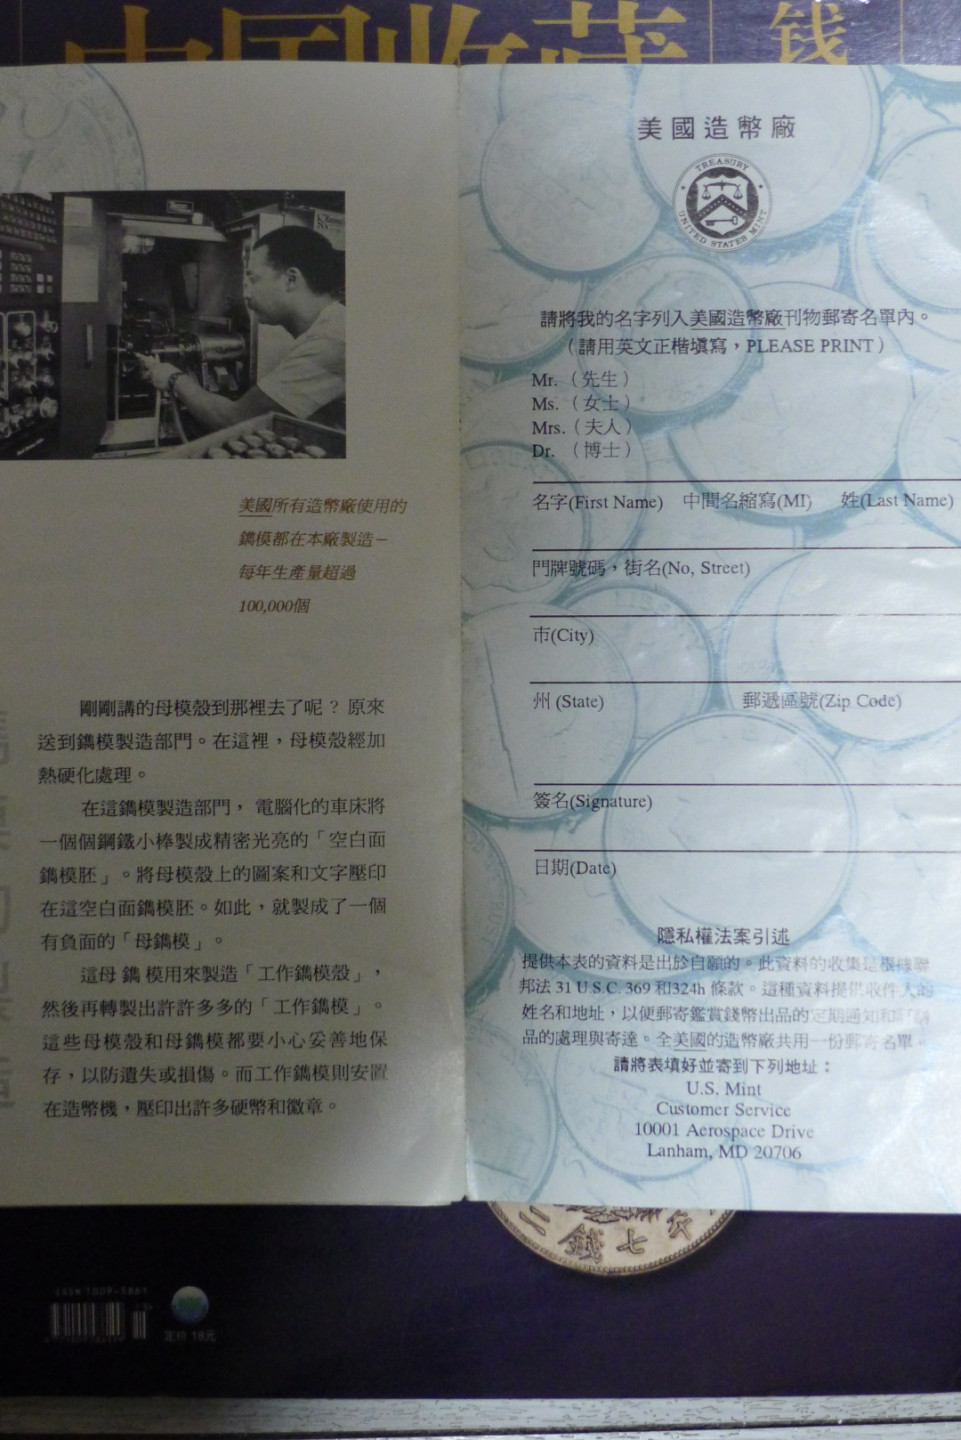 中国收藏
钱
美國所有造幣廠使用的
鐫模都在本廠製造－
每年生產量超過
100,000個
剛剛講的母模殼到那裡去了呢？原來
送到鐫模製造部門。在這裡，母模殼經加
熱硬化處理。
在這鐫模製造部門，電腦化的車床將
一個個鋼鐵小棒製成精密光亮的「空白面
鐫模胚」。將母模殼上的圖案和文字壓印
在這空白面鐫模胚。如此，就製成了一個
有負面的「母鐫模」。
這母鐫模用來製造「工作鐫模殼」，
然後再轉製出許許多多的「工作鐫模」。
這些母模殼和母鐫模都要小心妥善地保
存，以防遺失或損傷。而工作鐫模則安置
在造幣機，壓印出許多硬幣和徽章。
美國造幣廠
TREASURY
UNITED STATES MINT
請將我的名字列入美國造幣廠刊物郵寄名單內。
（請用英文正楷填寫，PLEASE PRINT）
Mr.（先生）
Ms.（女士）
Mrs.（夫人）
Dr.（博士）
名字(First Name) 中間名縮寫(MI) 姓(Last Name)
門牌號碼，街名(No, Street)
市(City)
州 (State) 郵遞區號(Zip Code)
簽名(Signature)
日期(Date)
隱私權法案引述
提供本表的資料是出於自願的。此資料的收集是根據聯
邦法 31 U.S.C. 369 和324h 條款。這種資料提供收件人的
姓名和地址，以便郵寄鑑賞錢幣出品的定期通知和訂購
品的處理與寄達。全美國的造幣廠共用一份郵寄名單。
請將表填好並寄到下列地址：
U.S. Mint
Customer Service
10001 Aerospace Drive
Lanham, MD 20706
二錢七
ISSN 1009-5861
定价 18元